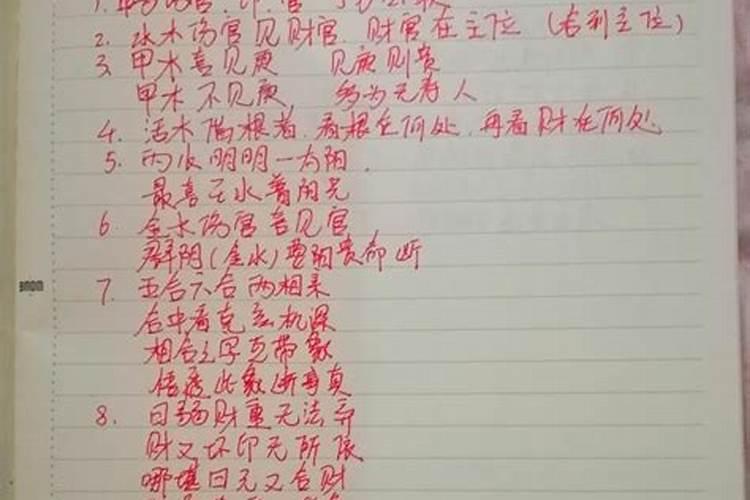 2. 水木伤官见财官. 财官在主位 (右利主位)
3. 甲木喜见庚 见庚则贵
甲木不见庚, 多为无寿人
4. 活木带根者. 看根在何处, 再看财在何处
5. 丙火明明一为阳.
最喜壬水著阳光
6. 金水伤官喜见官
群阴(金水)要阳贵命断
7. 五合六合两相亲
合中看克玄机深
相合之字克带象
悟透此象断事真
8. 日弱财重无法
财又坏印无所依
哪堪日元又合财